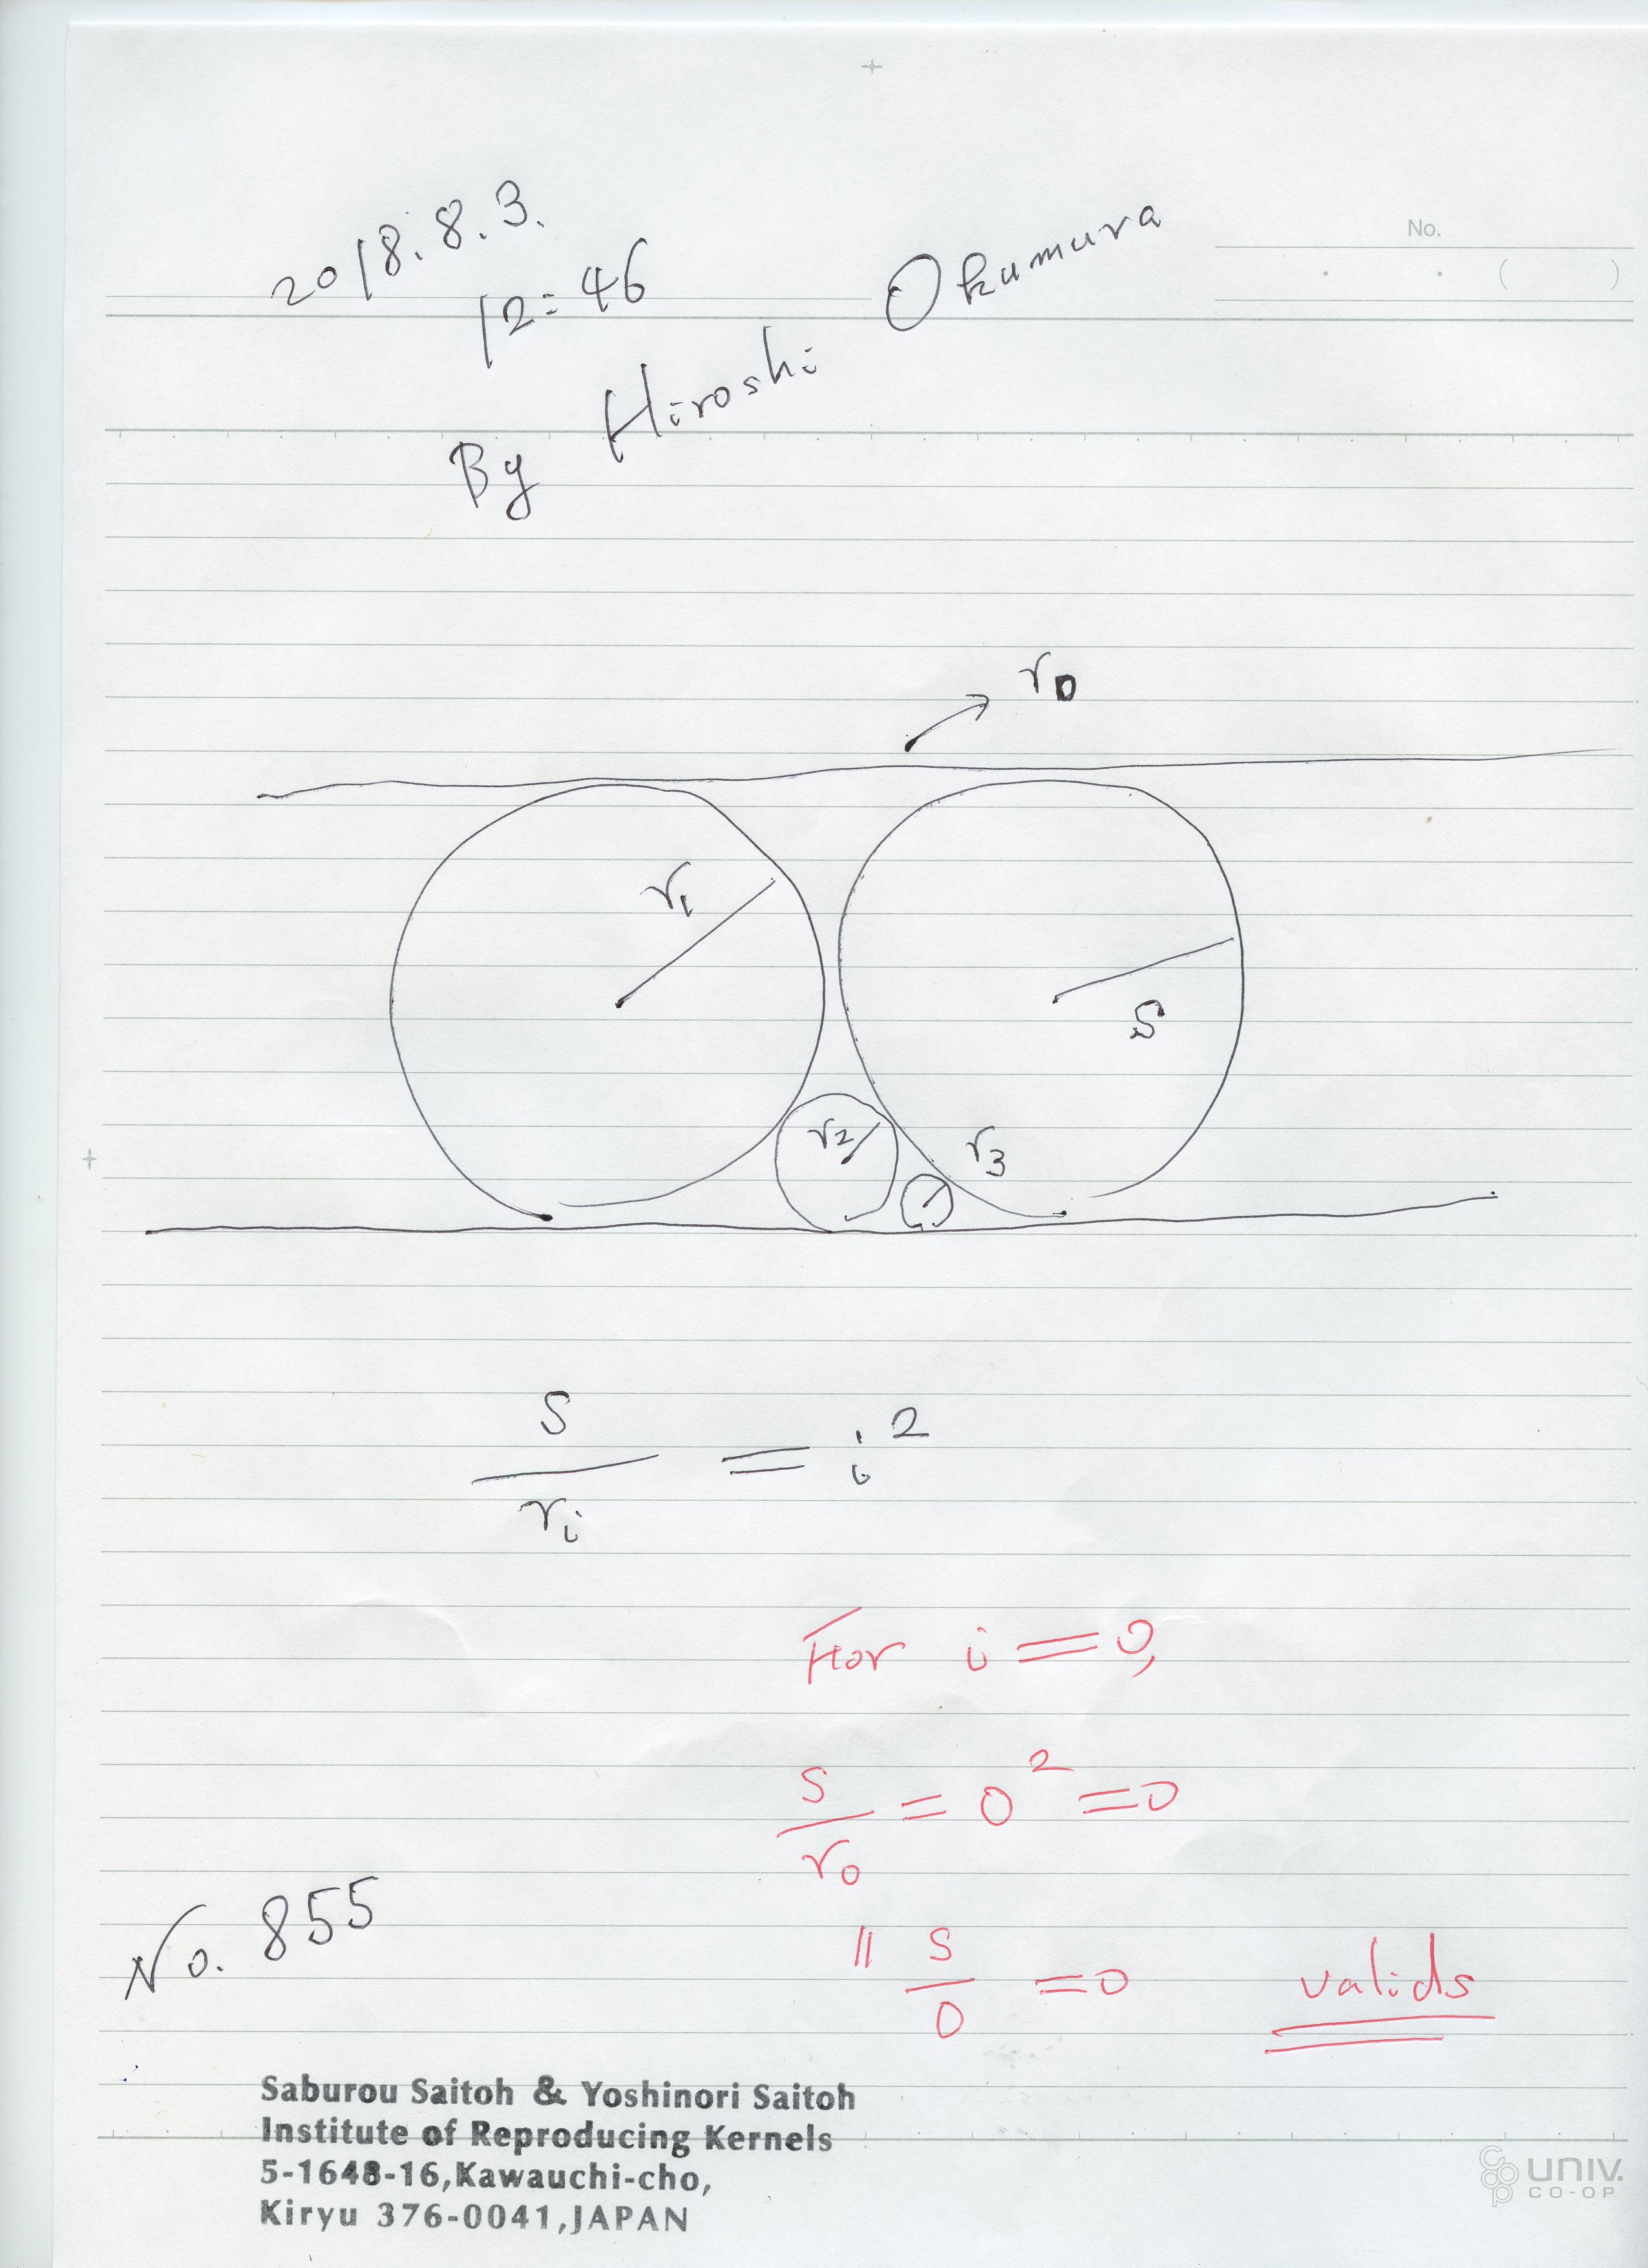 No.
2018.8.3.
12:46
By Hiroshi Okumura
r0
r1
s
r2
r3
s
/
ri
= i²
For i = 0,
s/r0 = 0² = 0
|| s/0 = 0 valids
No. 855
Saburou Saitoh & Yoshinori Saitoh
Institute of Reproducing Kernels
5-1648-16,Kawauchi-cho,
Kiryu 376-0041,JAPAN
UNIV.
CO-OP